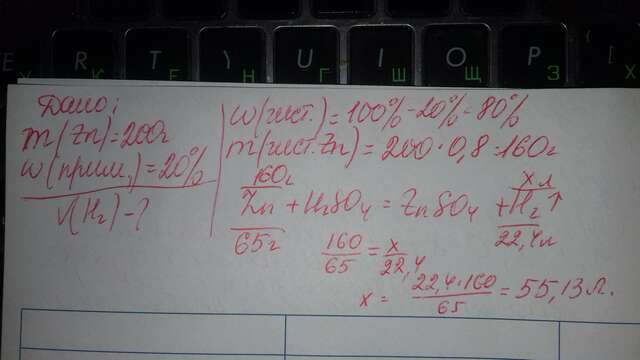 E R T Y U I O P
К Е Н Г Ш Щ З Х
Дано:
m(Zn)=200г
w(прим.)=20%
V(H₂)-?
w(чист.)=100%-20%=80%
m(чист.Zn)=200·0,8=160г
160г x л
Zn + H₂SO₄ = ZnSO₄ + H₂↑
65г 22,4л
160/65 = x/22,4
x = 22,4·160/65 = 55,13л.